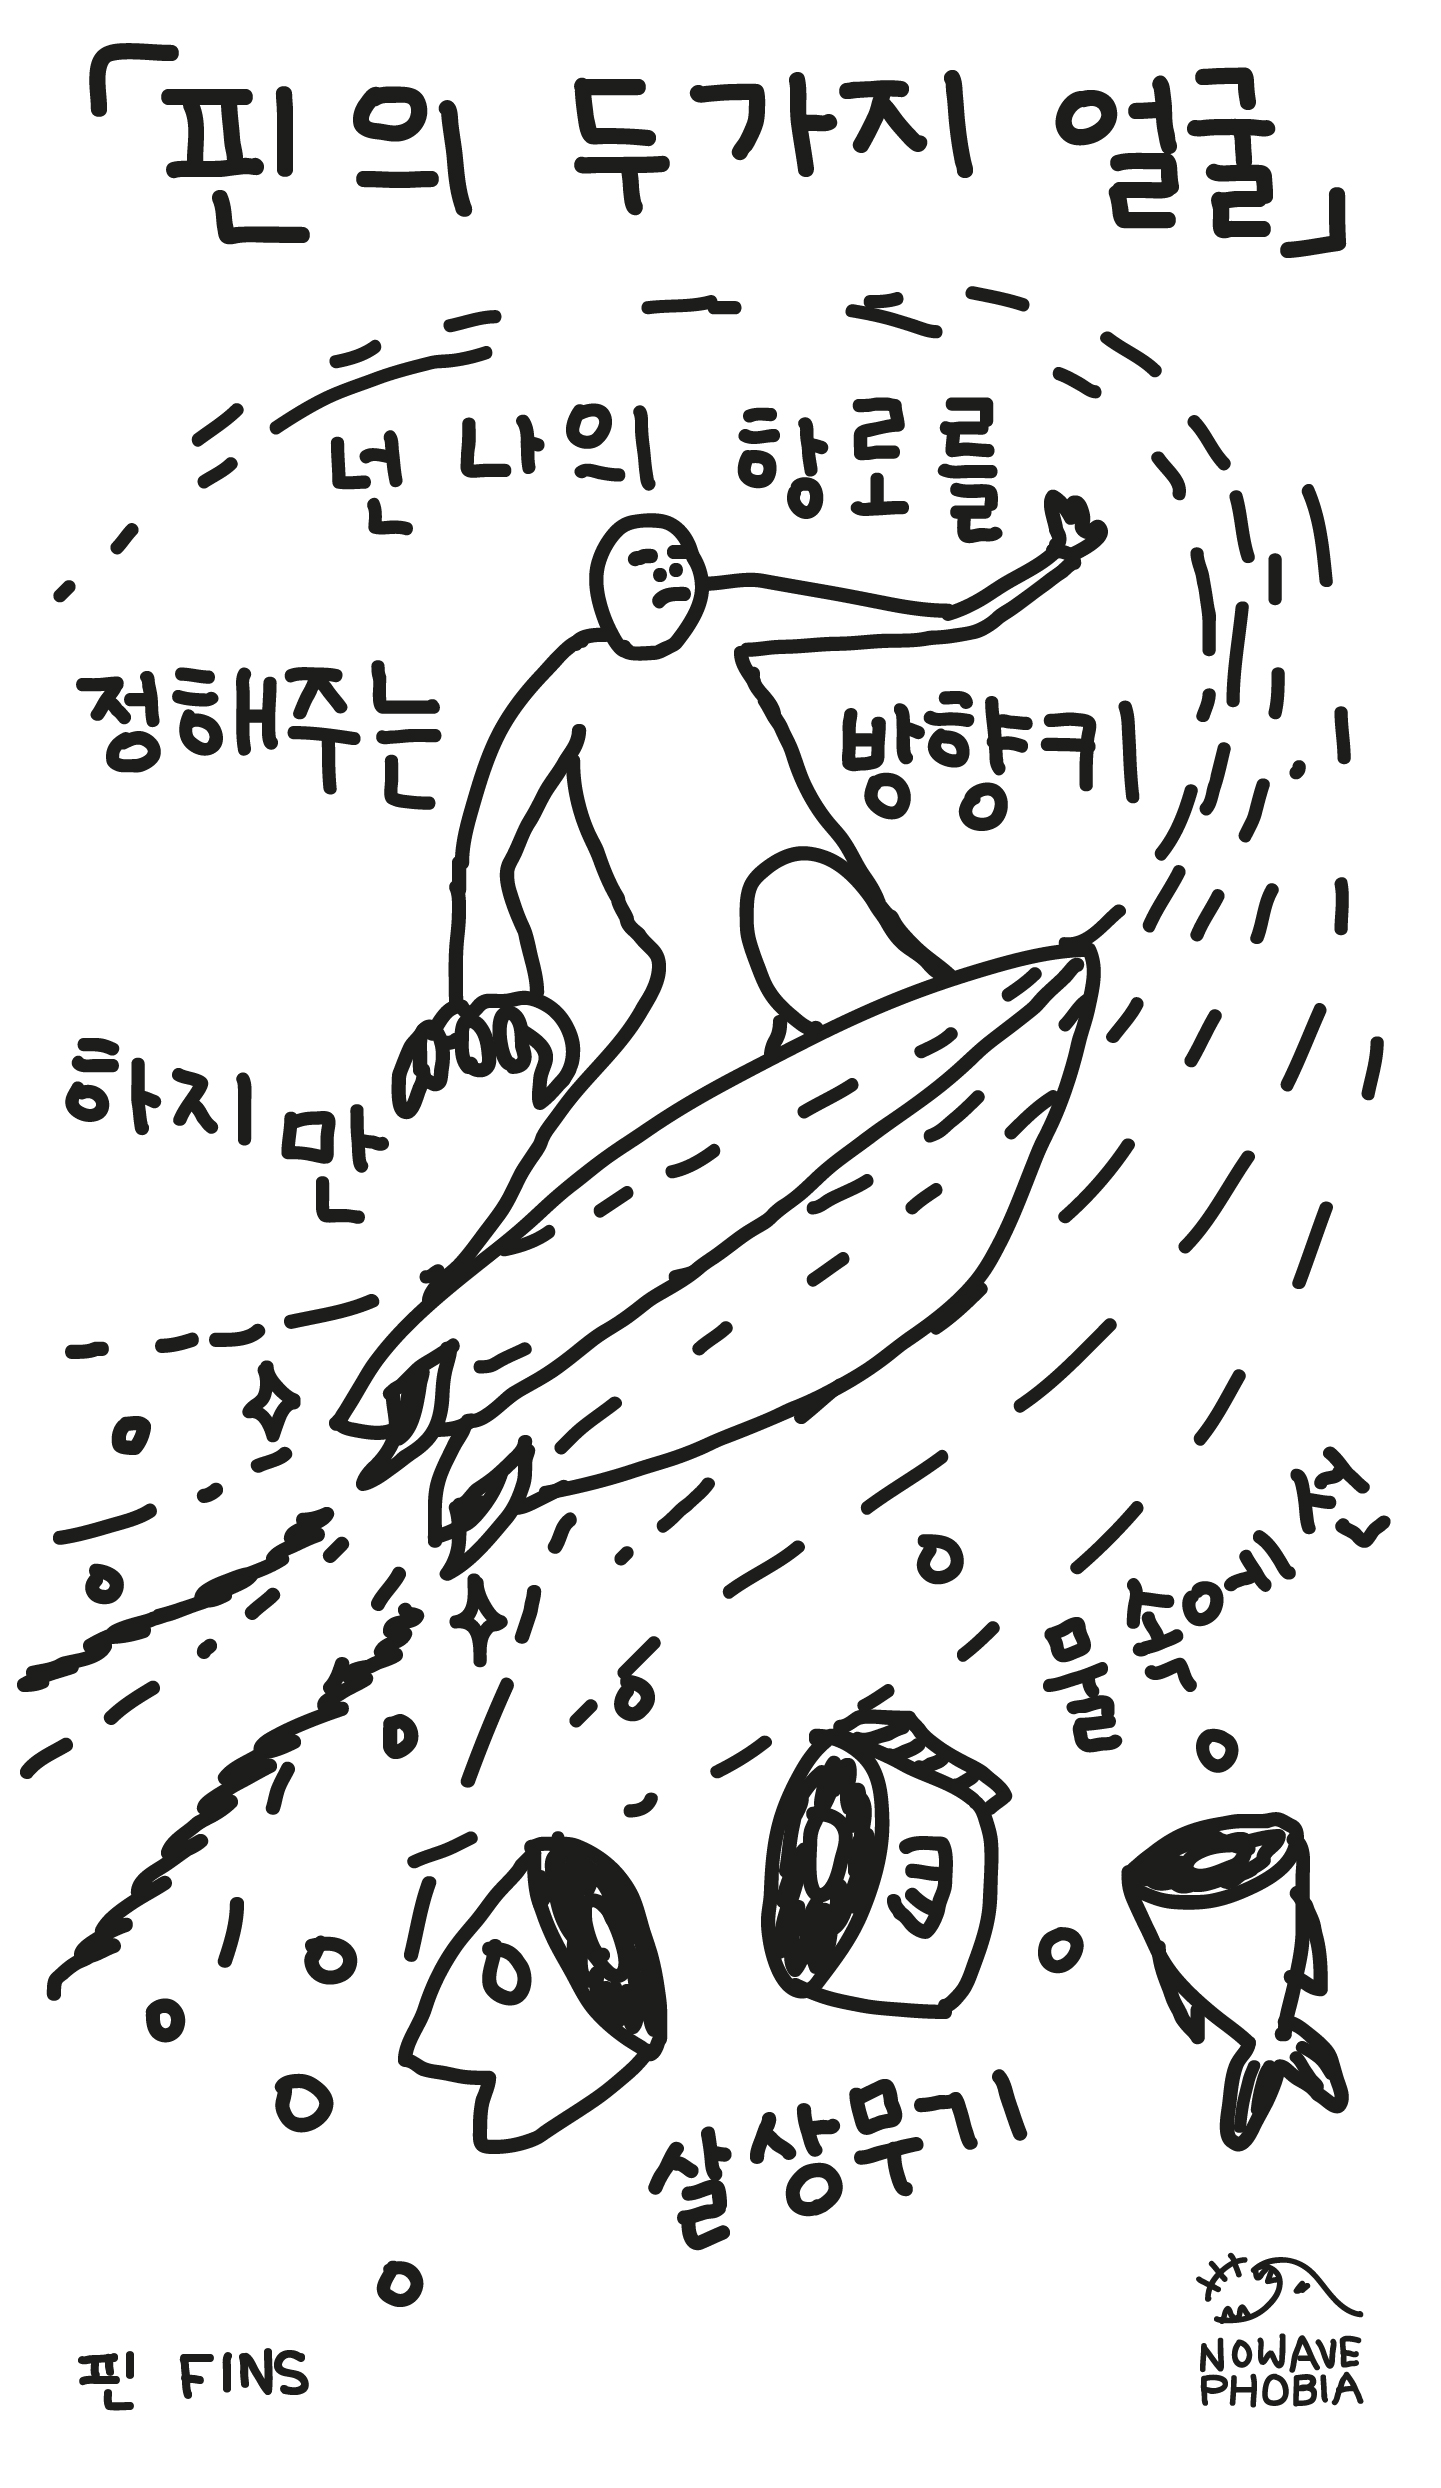 「핀의 두가지 얼굴」
넌 나의 항로를
정해주는
방향키
하지만
전에섞
만난
살상무기
핀 FINS
NOWAVE
PHOBIA